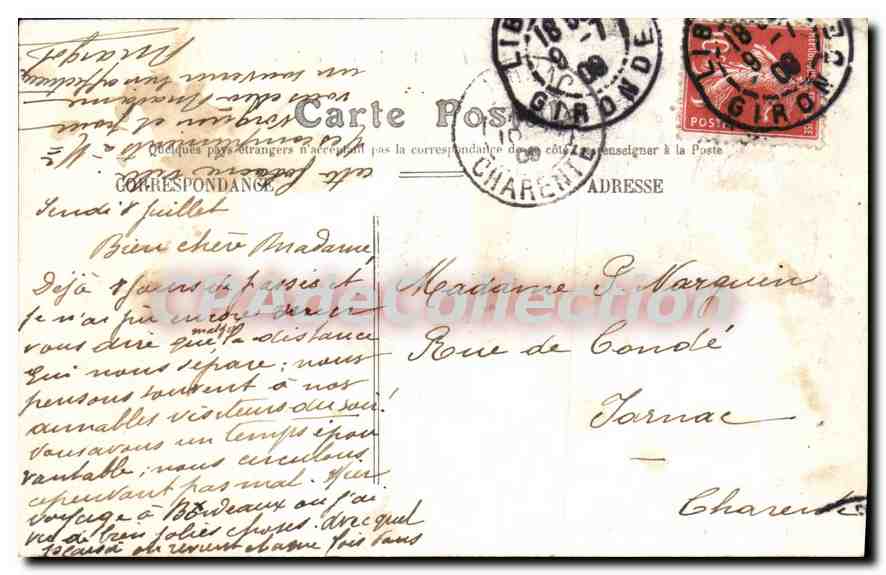 Carte Postale
Quelques pays étrangers n'acceptent pas la correspondance de ce côté renseigner à la Poste
CORRESPONDANCE
ADRESSE
LIB
18
9 -7
09
GIRONDE
LIB
18
9 -7
09
GIRONDE
09
CHARENTE
POSTES
CPAdeCollection
Jeudi 8 juillet
Bien chère Madame,
Déjà 8 jours de passés et
je n'ai pu encore venir
vous dire que malgré la distance
qui nous sépare, nous
pensons souvent à nos
aimables visiteurs du soir!
Nous avons un temps épou
vantable, nous circulons
cependant pas mal. Hier
voyage à Bordeaux où j'ai
vu de bien jolies choses. Avec quel
plaisir on revient chaque fois dans
cette
ville
compliments à Mr
Narquin et pour
vous chère Madame
un souvenir très affectueux
Margot
Madame P. Narquin
Rue de Condé
Jarnac
Charente